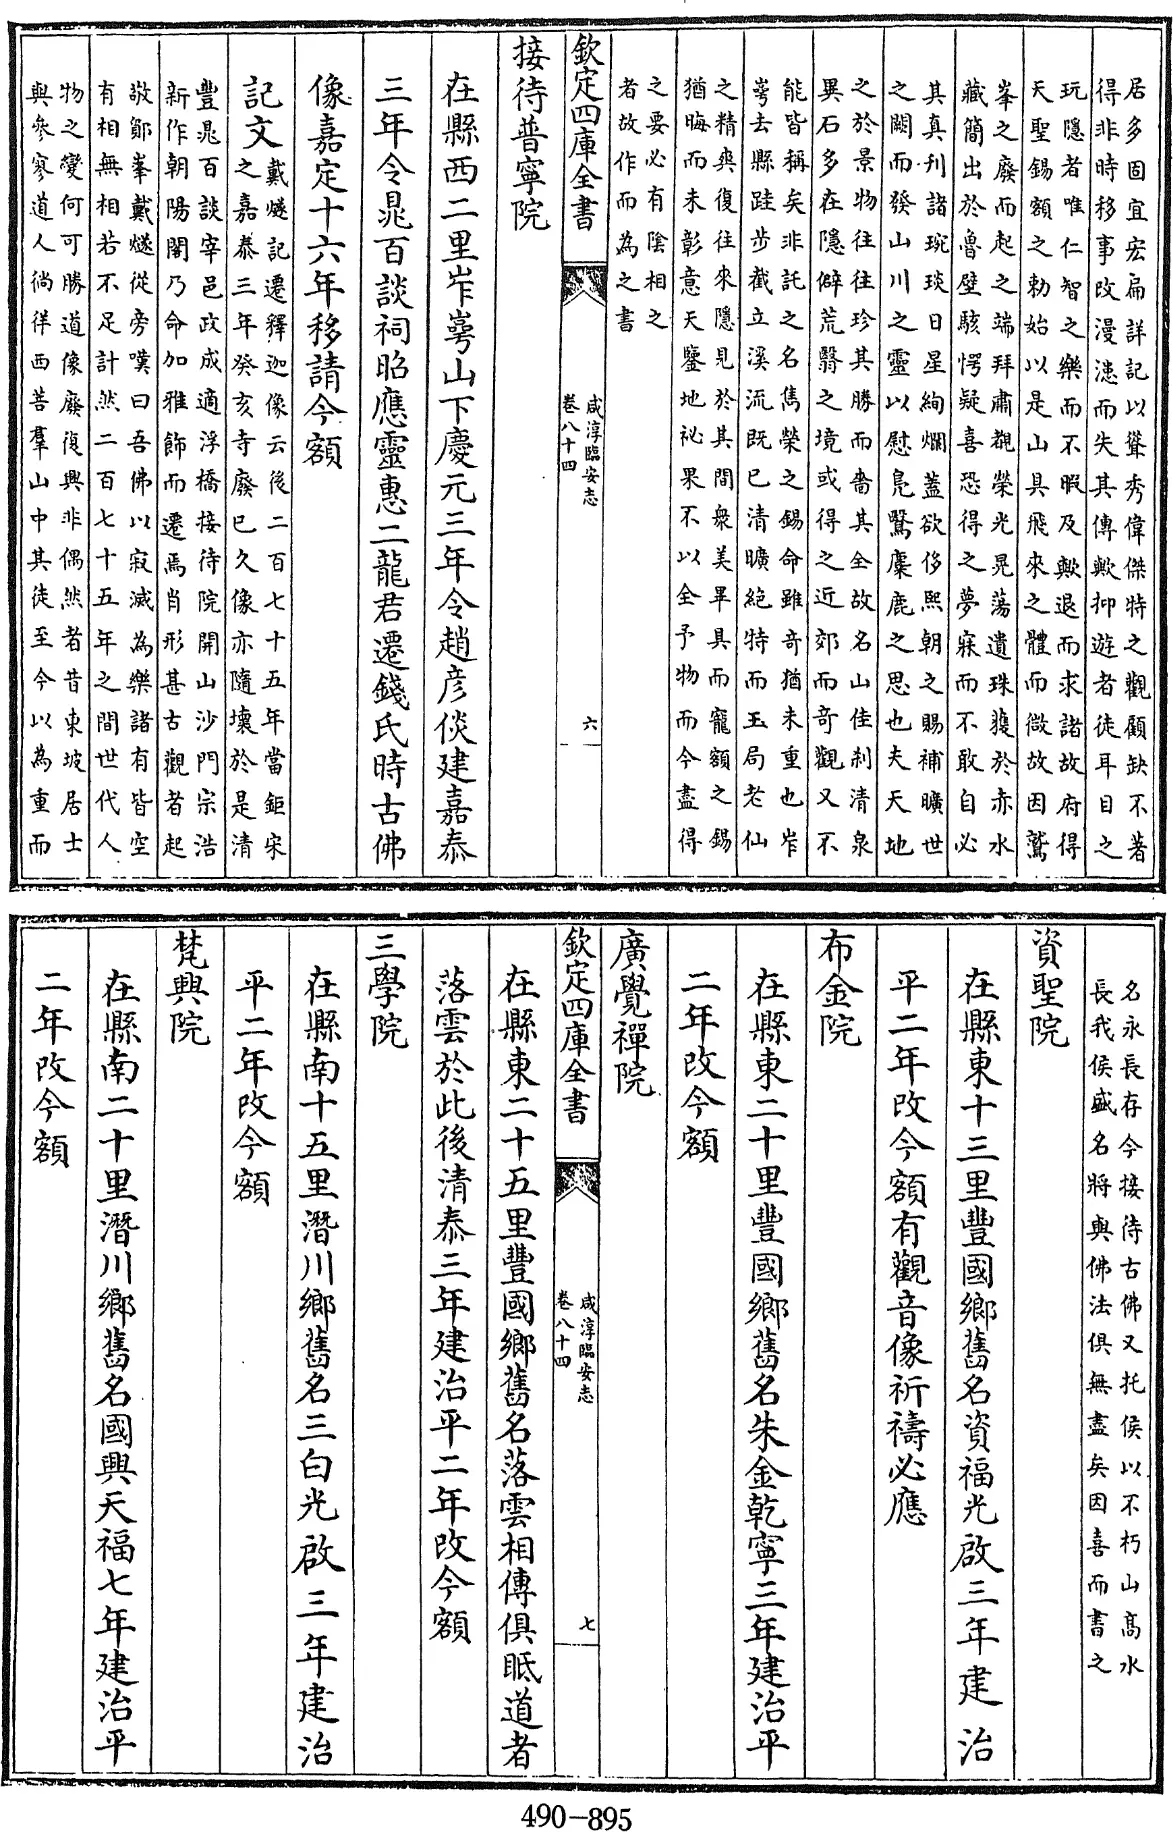 居多固宜宏扁詳記以聳秀偉傑特之觀顧缺不著
得非時移事改漫漶而失其傳歟抑遊者徒耳目之
玩隱者唯仁智之樂而不暇及歟退而求諸故府得
天聖錫額之勅始以是山具飛來之體而微故因鷲
峯之廢而起之端拜肅觀榮光晃蕩遺珠䕶於赤水
藏簡出於魯壁駭愕疑喜恐得之夢寐而不敢自必
其真刋諸琬琰日星絢爛蓋欲侈熙朝之賜補曠世
之闕而發山川之靈以慰鳬鷖麋鹿之思也夫天地
之於景物往往珍其勝而嗇其全故名山佳刹清泉
異石多在隱僻荒翳之境或得之近郊而竒觀又不
能皆稱矣非託之名雋榮之錫命雖竒猶未重也岝
崿去縣跬步截立溪流既已清曠絶特而玉局老仙
之精爽復往來隱見於其間衆美畢具而寵額之錫
猶晦而未彰意天鑒地祕果不以全予物而今盡得
之要必有陰相之
者故作而為之書
欽定四庫全書
咸淳臨安志
卷八十四
六
接待普寧院
在縣西二里岝崿山下慶元三年令趙彦倓建嘉泰
三年令晁百談祠昭應靈惠二龍君遷錢氏時古佛
像嘉定十六年移請今額
記文
戴燧記遷釋迦像云後二百七十五年當鉅宋
之嘉泰三年癸亥寺廢已久像亦隨壞於是清
豐晁百談宰邑政成適浮橋接待院開山沙門宗浩
新作朝陽閣乃命加雅飾而遷焉肖形甚古觀者起
敬鄭峯戴燧從旁嘆曰吾佛以寂滅為樂諸有皆空
有相無相若不足計然二百七十五年之間世代人
物之變何可勝道像廢復興非偶然者昔東坡居士
與參寥道人徜徉西菩羣山中其徒至今以為重而
名永長存今接待古佛又托侯以不朽山高水
長我侯盛名將與佛法俱無盡矣因喜而書之
資聖院
在縣東十三里豐國鄉舊名資福光啟三年建治
平二年改今額有觀音像祈禱必應
布金院
在縣東二十里豐國鄉舊名朱金乾寧三年建治平
二年改今額
廣覺禪院
欽定四庫全書
咸淳臨安志
卷八十四
七
在縣東二十五里豐國鄉舊名落雲相傳俱眂道者
落雲於此後清泰三年建治平二年改今額
三學院
在縣南十五里潛川鄉舊名三白光啟三年建治
平二年改今額
梵興院
在縣南二十里潛川鄉舊名國興天福七年建治平
二年改今額
490-895